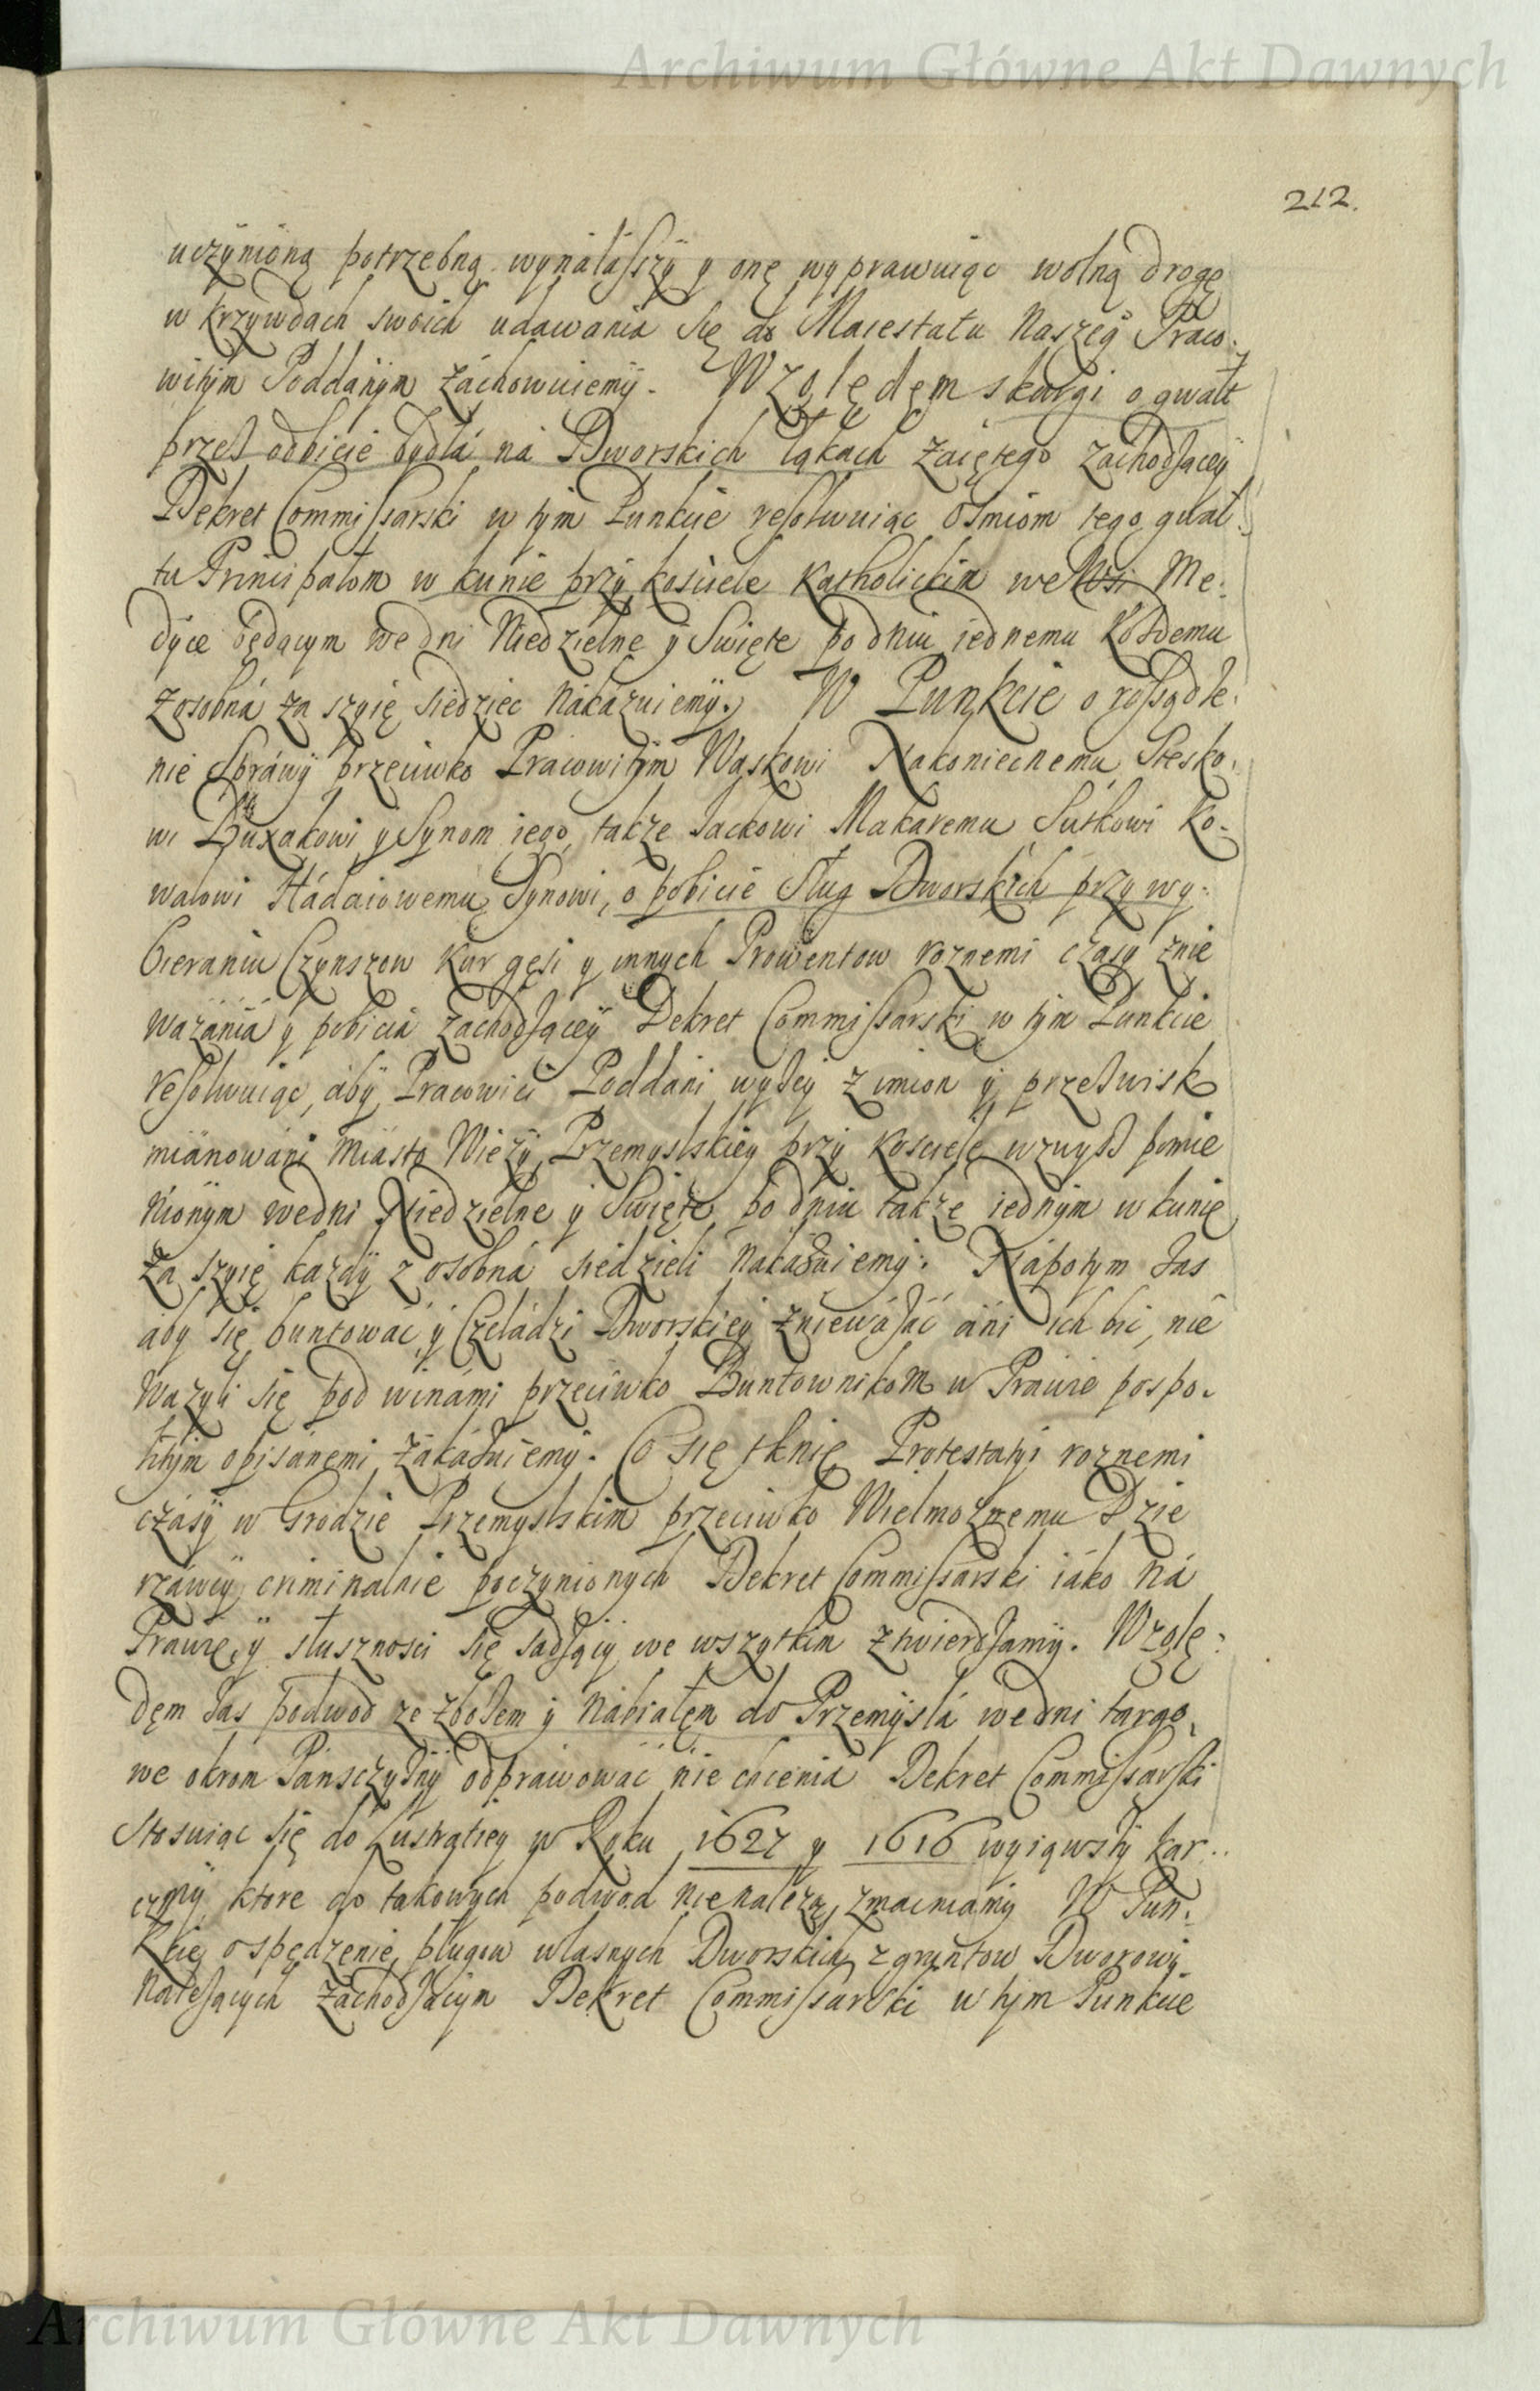 Archiwum Główne Akt Dawnych
212.
uczynioną potrzebną wynalaszy y onę wyprawuiąc wolną drogę
w krzywdach swoich udawania się do Maiestatu Naszeg° Praco-
witym Poddanym zachowuiemy. Względem skargi o gwałt
przez odbicie bydła na Dworskich łąkach zaiętego zachodzącey
Dekret Commissarski w tym Punkcie resolwuiąc Osmiom tego gwał-
tu Principałom w kunie przy kosciele Katholickim we Wsi Me:
dyce będącym we dni Niedzielne y Swięte po dniu iednemu Kozdemu
z osobna za szyię siedziec nakazuiemy. W Punkcie o rossądze-
nie Sprawy przeciwko Pracowitym Waskowi Nakoniecnemu Stesko-
wi Buxakowi y Synom iego, takze Jackowi Makaremu Sutkowi Ko-
walowi Hadaiowemu Synowi, o pobicie Sług Dworskich przy wy-
bieraniu Czynszow Kur gęsi y innych Prowentow roznemi czasy znie
wazania y pobicia zachodzącey Dekret Commissarski w tym Punkcie
resolwuiąc, aby Pracowici Poddani wyzey z imion y przezwisk
mianowani miasto Wiezy Przemyslskiey przy kosciele wzwysz pomie
nionym we dni Niedzielne y Swięte po dniu takze iednym w kunie
za szyię kazdy z osobna siedzieli nakazuiemy. Napotym zas
aby się buntowac y Czeladzi Dworskiey zniewazać ani ich bic, nie
wazyli się pod winami przeciwko Buntownikom w Prawie pospo-
litym opisanemi zakazuiemy. Co się tknie Protestatyi roznemi
czasy w Grodzie Przemyslskim przeciwko Wielmoznemu Dzie
rzawcy criminalnie poczynionych Dekret Commissarski iako na
Prawie y słusznosci się sadzący we wszytkim ztwierdzamy. Wzglę-
dem zas podwod ze zbozem y nabiałem do Przemysla we dni targo-
we okrom Panszczyzny odprawować nie chcenia Dekret Commissarski
stosuiąc się do Lustratiey w Roku 1627 y 1616 wyiąwszy kar-
czmy, ktore do takowych podwod nie nalezą, zmacniamy W Pun-
kcie o spędzenie pługow własnych Dworskich z gruntow Dworowi
nalezących zachodzącym Dekret Commissarski w tym Punkcie
Archiwum Główne Akt Dawnych